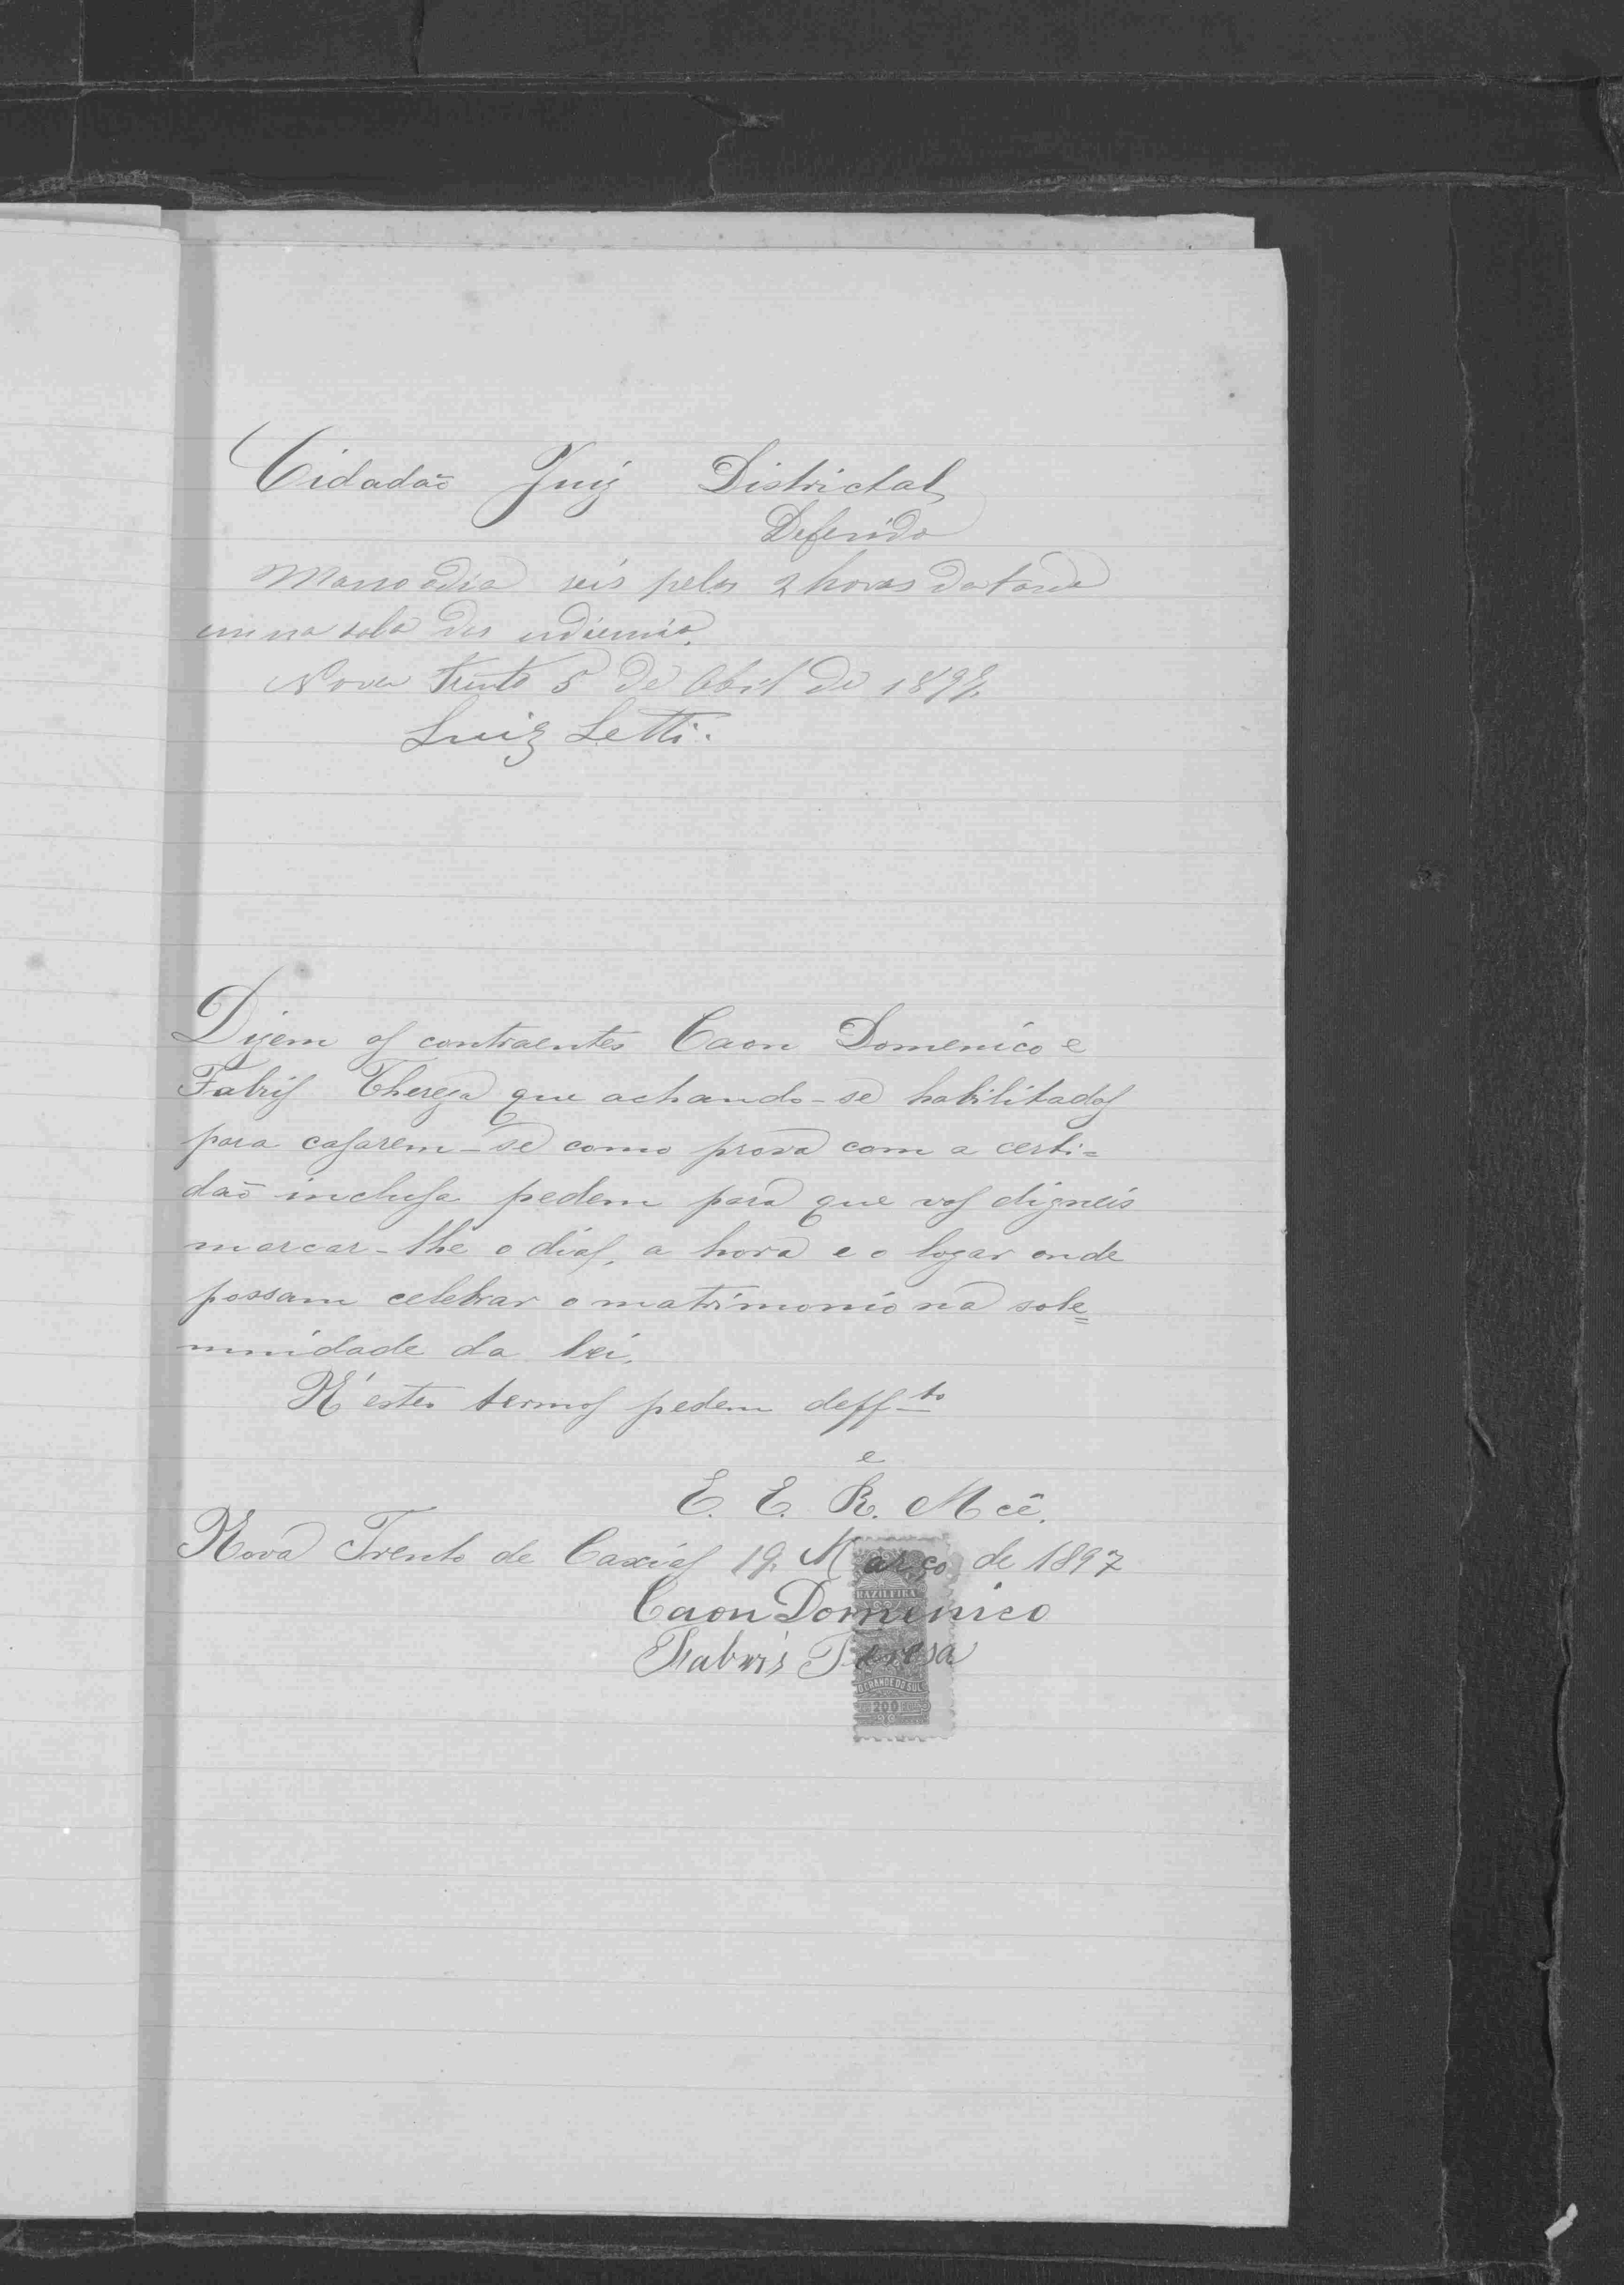 Cidadaõ Juiz Districtal
Deferido
Marco o dia seis pelas 2 horas da tarde
em na sala das udiencia.
Nova Trento 5 de Abril de 1897.
Luiz Letti.
Dizem os contraentes Caon Domenico e
Fabris Thereza que achando-se habilitados
para casarem-se como prova com a certi=
daõ inclusa pedem para que vos digneis
marcar-lhe o dias, a hora e o logar onde
possam celebrar o matrimonio na sole=
mnidade da lei.
N'estes termos pedem deff.to
e
E. E. R. Mcê.
Nova Trento de Caxias 19. Março de 1897
Caon Domenico
Fabris Teresa
RAZILEIRA
O GRANDE DO SUL
200